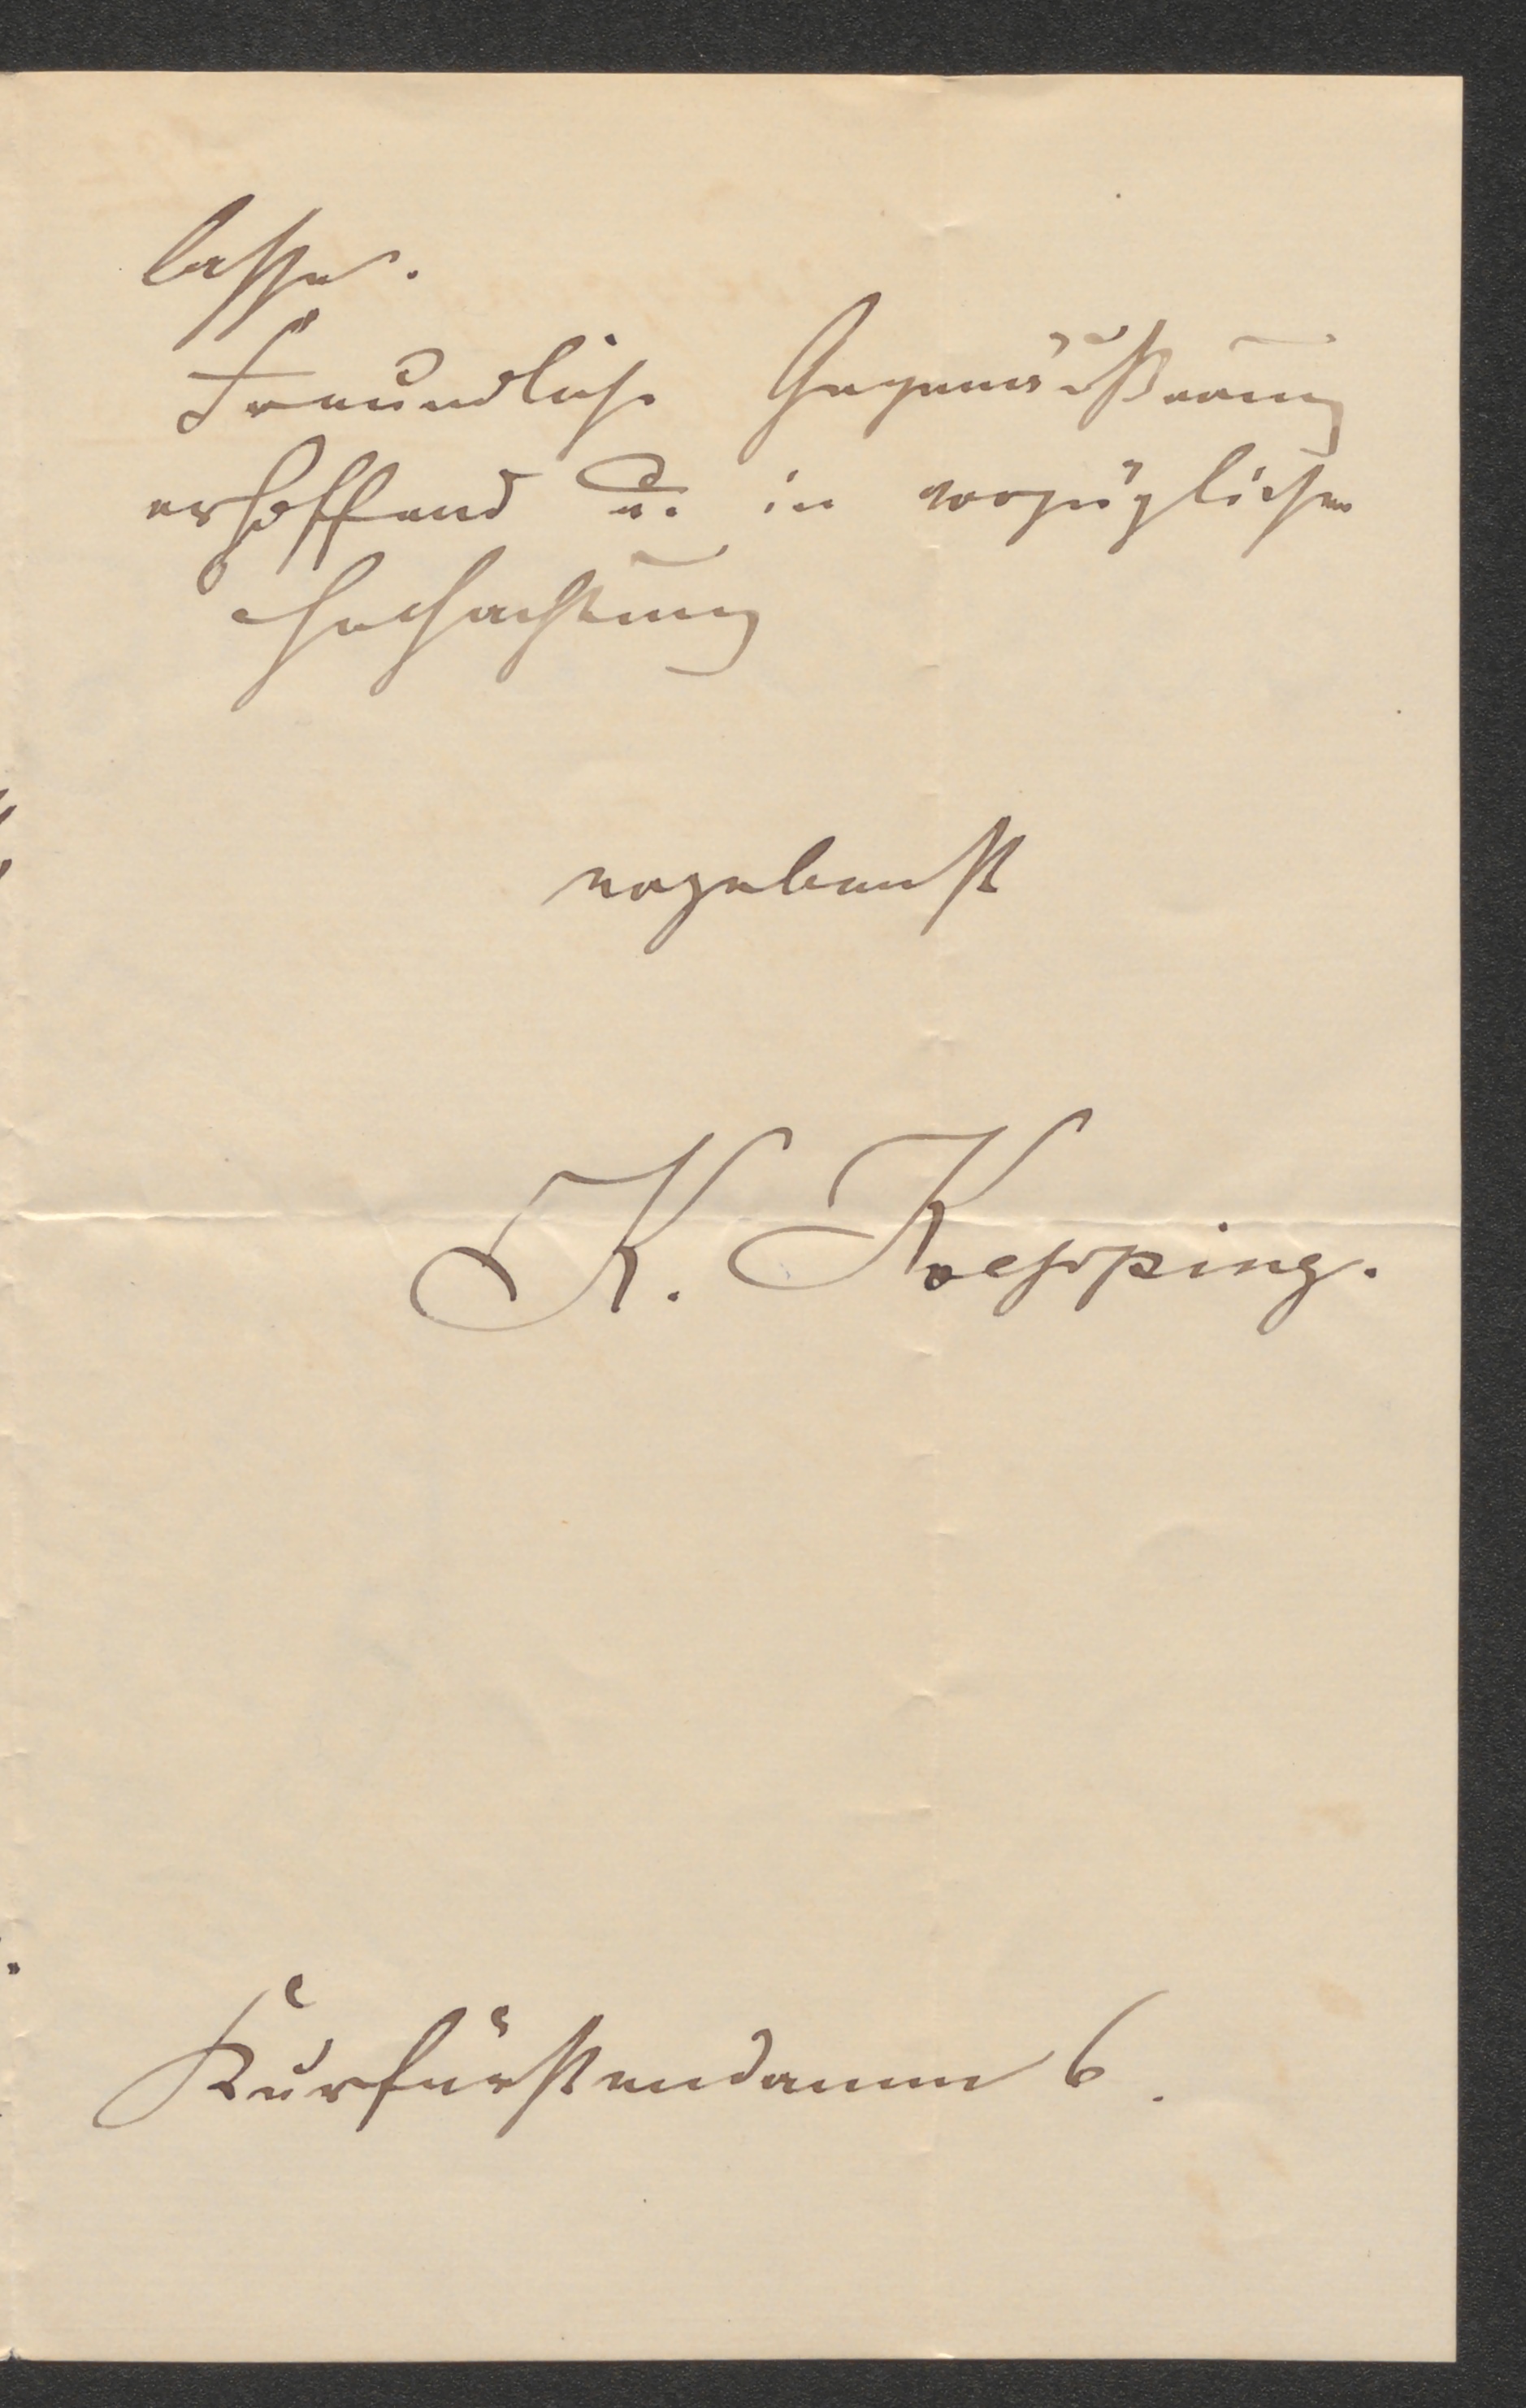 lassen.
Freundliche Gegenäußerung
erhoffend u. in vorzüglicher
Hochachtung
ergebenst
K. Koepping.
Kurfürstendamm 6.